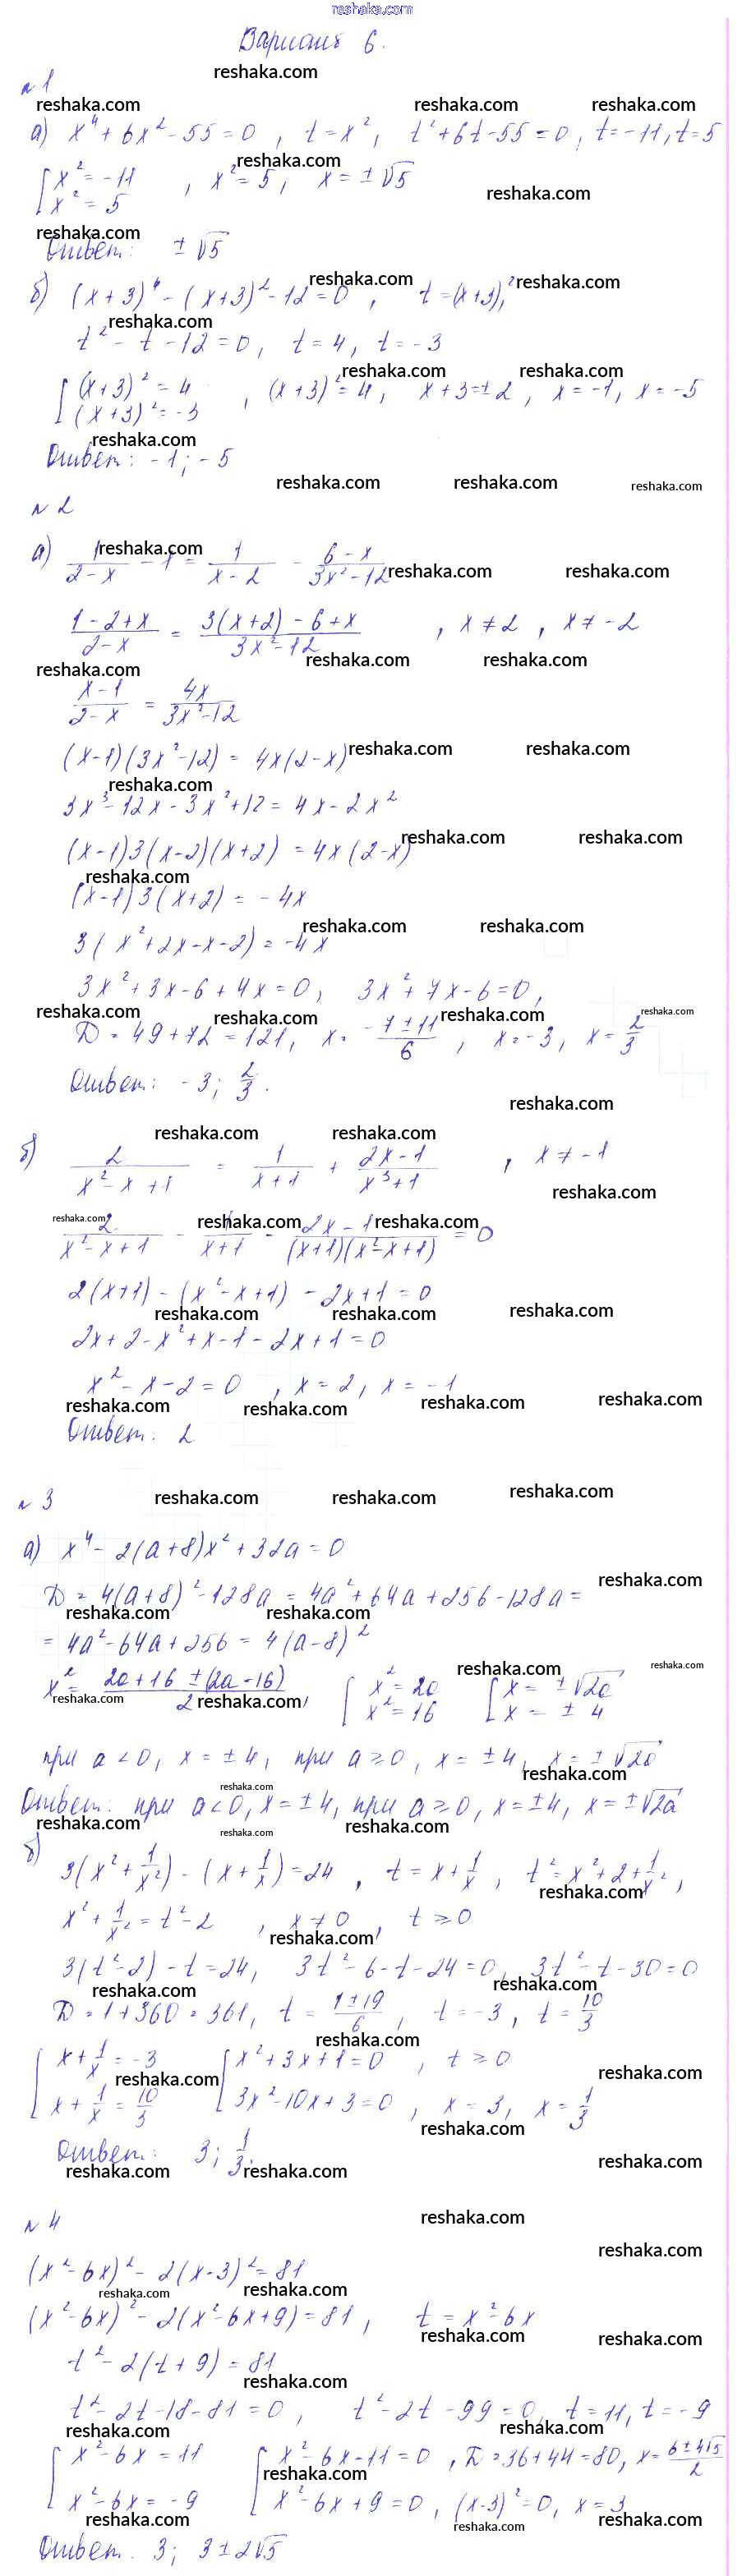 reshaka.com
Вариант 6.
reshaka.com
№ 1
reshaka.com reshaka.com reshaka.com
а) x⁴ + 6x² - 55 = 0 , t = x² , t² + 6t - 55 = 0 , t = -11 , t = 5
reshaka.com
[ x² = -11
x² = 5 , x² = 5 , x = ± √5
reshaka.com
reshaka.com
Ответ: ± √5
reshaka.com reshaka.com
б) (x + 3)⁴ - (x + 3)² - 12 = 0 , t = (x + 3)²,
reshaka.com
t² - t - 12 = 0 , t = 4 , t = - 3
reshaka.com reshaka.com
[ (x + 3)² = 4
(x + 3)² = -3 , (x + 3)² = 4 , x + 3 = ± 2 , x = -1 , x = -5
reshaka.com
Ответ: - 1 ; - 5
reshaka.com reshaka.com reshaka.com
№ 2
reshaka.com
а) 1/(2 - x) - 1 = 1/(x - 2) - (6 - x)/(3x² - 12)
reshaka.com reshaka.com
(1 - 2 + x)/(2 - x) = (3(x + 2) - 6 + x)/(3x² - 12) , x ≠ 2 , x ≠ - 2
reshaka.com reshaka.com
reshaka.com
(x - 1)/(2 - x) = 4x/(3x² - 12)
(x - 1)(3x² - 12) = 4x(2 - x)
reshaka.com reshaka.com
reshaka.com
3x³ - 12x - 3x² + 12 = 4x - 2x²
(x - 1)3(x - 2)(x + 2) = 4x(2 - x)
reshaka.com reshaka.com
reshaka.com
(x - 1)3(x + 2) = - 4x
reshaka.com reshaka.com
3(x² + 2x - x - 2) = - 4x
3x² + 3x - 6 + 4x = 0 , 3x² + 7x - 6 = 0 ,
reshaka.com reshaka.com reshaka.com reshaka.com
D = 49 + 72 = 121 , x = (-7 ± 11)/6 , x = - 3 , x = 2/3
Ответ: - 3 ; 2/3 .
reshaka.com
reshaka.com reshaka.com
б) 2/(x² - x + 1) = 1/(x + 1) + (2x - 1)/(x³ + 1) , x ≠ - 1
reshaka.com
reshaka.com reshaka.com reshaka.com
2/(x² - x + 1) - 1/(x + 1) - (2x - 1)/((x + 1)(x² - x + 1)) = 0
2(x + 1) - (x² - x + 1) - 2x + 1 = 0
reshaka.com reshaka.com reshaka.com
2x + 2 - x² + x - 1 - 2x + 1 = 0
x² - x - 2 = 0 , x = 2 , x = - 1
reshaka.com reshaka.com reshaka.com reshaka.com
Ответ: 2
reshaka.com reshaka.com reshaka.com
№ 3
а) x⁴ - 2(a + 8)x² + 32a = 0
reshaka.com
D = 4(a + 8)² - 128a = 4a² + 64a + 256 - 128a =
reshaka.com reshaka.com
= 4a² - 64a + 256 = 4(a - 8)²
reshaka.com reshaka.com
x² = (2a + 16 ± (2a - 16))/2 , [ x² = 2a
x² = 16 [ x = ± √2a
x = ± 4
reshaka.com reshaka.com
при a < 0 , x = ± 4 , при a ≥ 0 , x = ± 4 , x = ± √2a
reshaka.com
reshaka.com
Ответ: при a < 0 , x = ± 4 , при a ≥ 0 , x = ± 4 , x = ± √2a
reshaka.com reshaka.com reshaka.com
б) 3(x² + 1/x²) - (x + 1/x) = 24 , t = x + 1/x , t² = x² + 2 + 1/x² ,
reshaka.com
x² + 1/x² = t² - 2 , x ≠ 0 , t ≥ 0
reshaka.com
3(t² - 2) - t = 24 , 3t² - 6 - t - 24 = 0 , 3t² - t - 30 = 0
reshaka.com reshaka.com
D = 1 + 360 = 361 , t = (1 ± 19)/6 , t = - 3 , t = 10/3
reshaka.com
[ x + 1/x = - 3
x + 1/x = 10/3 [ x² + 3x + 1 = 0 , t ≥ 0
3x² - 10x + 3 = 0 , x = 3 , x = 1/3
reshaka.com reshaka.com
reshaka.com
Ответ: 3 ; 1/3 .
reshaka.com reshaka.com reshaka.com
№ 4
reshaka.com
reshaka.com
(x² - 6x)² - 2(x - 3)² = 81
reshaka.com reshaka.com
(x² - 6x)² - 2(x² - 6x + 9) = 81 , t = x² - 6x
reshaka.com reshaka.com
t² - 2(t + 9) = 81
reshaka.com
t² - 2t - 18 - 81 = 0 , t² - 2t - 99 = 0 , t = 11 , t = - 9
reshaka.com reshaka.com
[ x² - 6x = 11
x² - 6x = - 9 [ x² - 6x - 11 = 0 , D = 36 + 44 = 80 , x = (6 ± 4√5)/2
x² - 6x + 9 = 0 , (x - 3)² = 0 , x = 3
reshaka.com
reshaka.com reshaka.com reshaka.com
Ответ. 3 ; 3 ± 2√5